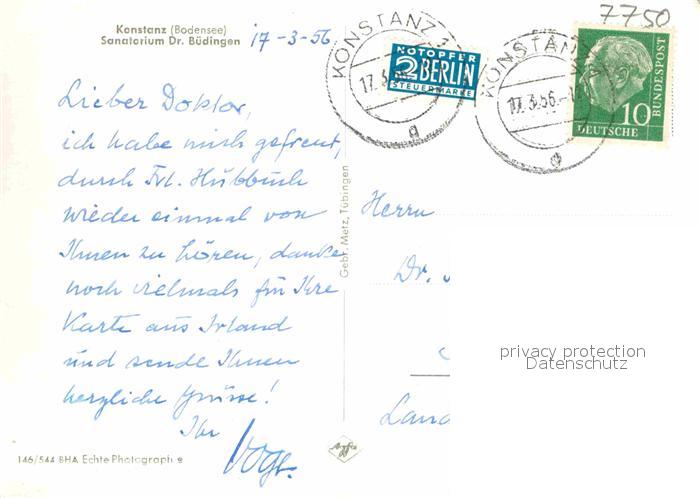 7750
Konstanz (Bodensee)
Sanatorium Dr. Büdingen 17-3-56
KONSTANZ
17.3.56
a
NOTOPFER
2 BERLIN
STEUERMARKE
KONSTANZ
17.3.56.-1
a
10
DEUTSCHE BUNDESPOST
Lieber Doktor,
ich habe mich gefreut,
durch Frl. Hubbuch
wieder einmal von
Ihnen zu hören, danke
noch vielmals für Ihre
Karte aus Irland
und sende Ihnen
herzliche Grüsse!
Ihr
Gebr. Metz, Tübingen
Herrn
Dr.
Land
privacy protection
Datenschutz
146/544 BHA Echte Photographie
Agfa